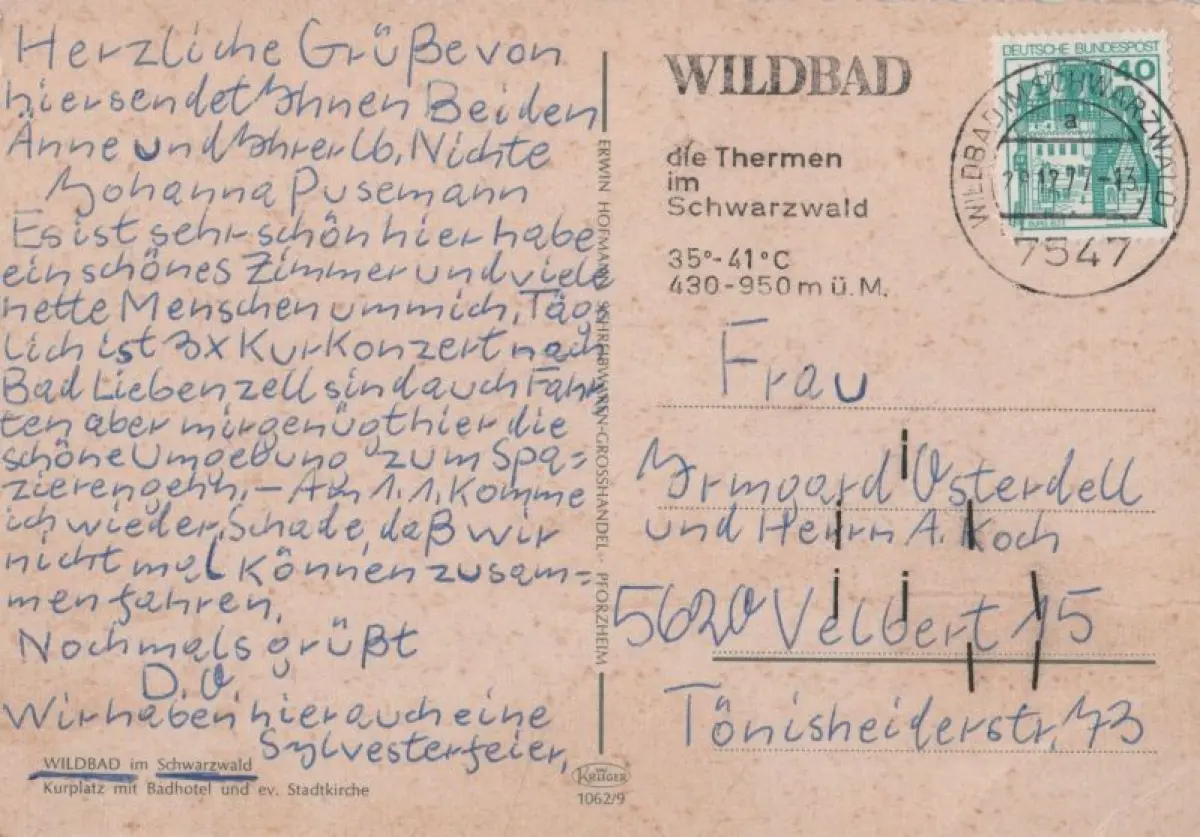 Herzliche Grüße von
hier sendet Ihnen Beiden
Änne und Ihrer lb. Nichte
Johanna Pusemann
Es ist sehr schön hier habe
ein schönes Zimmer und viele
nette Menschen um mich, Täg
lich ist 3x Kurkonzert nach
Bad Liebenzell sind auch Fahr
ten aber mir genügt hier die
schöne Umgebung zum Spa=
zierengeh'n. – Am 1.1. komme
ich wieder, Schade, daß wir
nicht mal können zusam-
men fahren,
Nochmals grüßt
D. O.
Wir haben hier auch eine
Sylvesterfeier,
WILDBAD im Schwarzwald
Kurplatz mit Badhotel und ev. Stadtkirche
ERWIN HOFMANN SCHREIBWAREN-GROSSHANDEL PFORZHEIM
KRÜGER
1062/9
WILDBAD
die Thermen
im
Schwarzwald
35°-41°C
430-950m ü.M.
DEUTSCHE BUNDESPOST
40
WILDBAD IM SCHWARZWALD
a
12.77-13
7547
Frau
Irmgard Osterdell
und Herrn A. Koch
5620 Velbert 15
Tönisheiderstr, 73